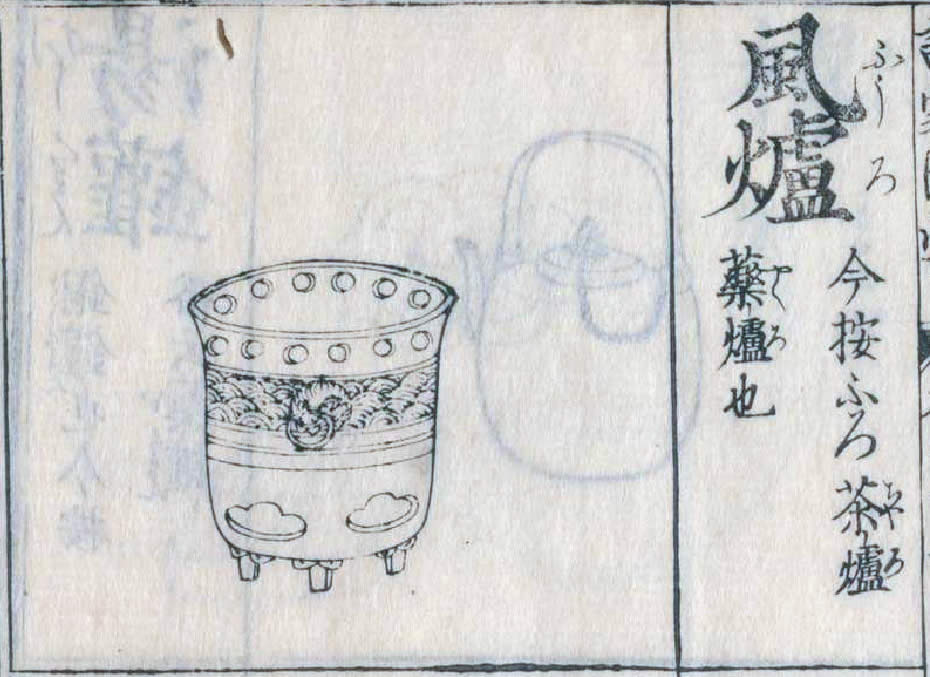 風爐
ふうろ
今按ふろ茶爐
ちやろ
藥爐也
やくろ